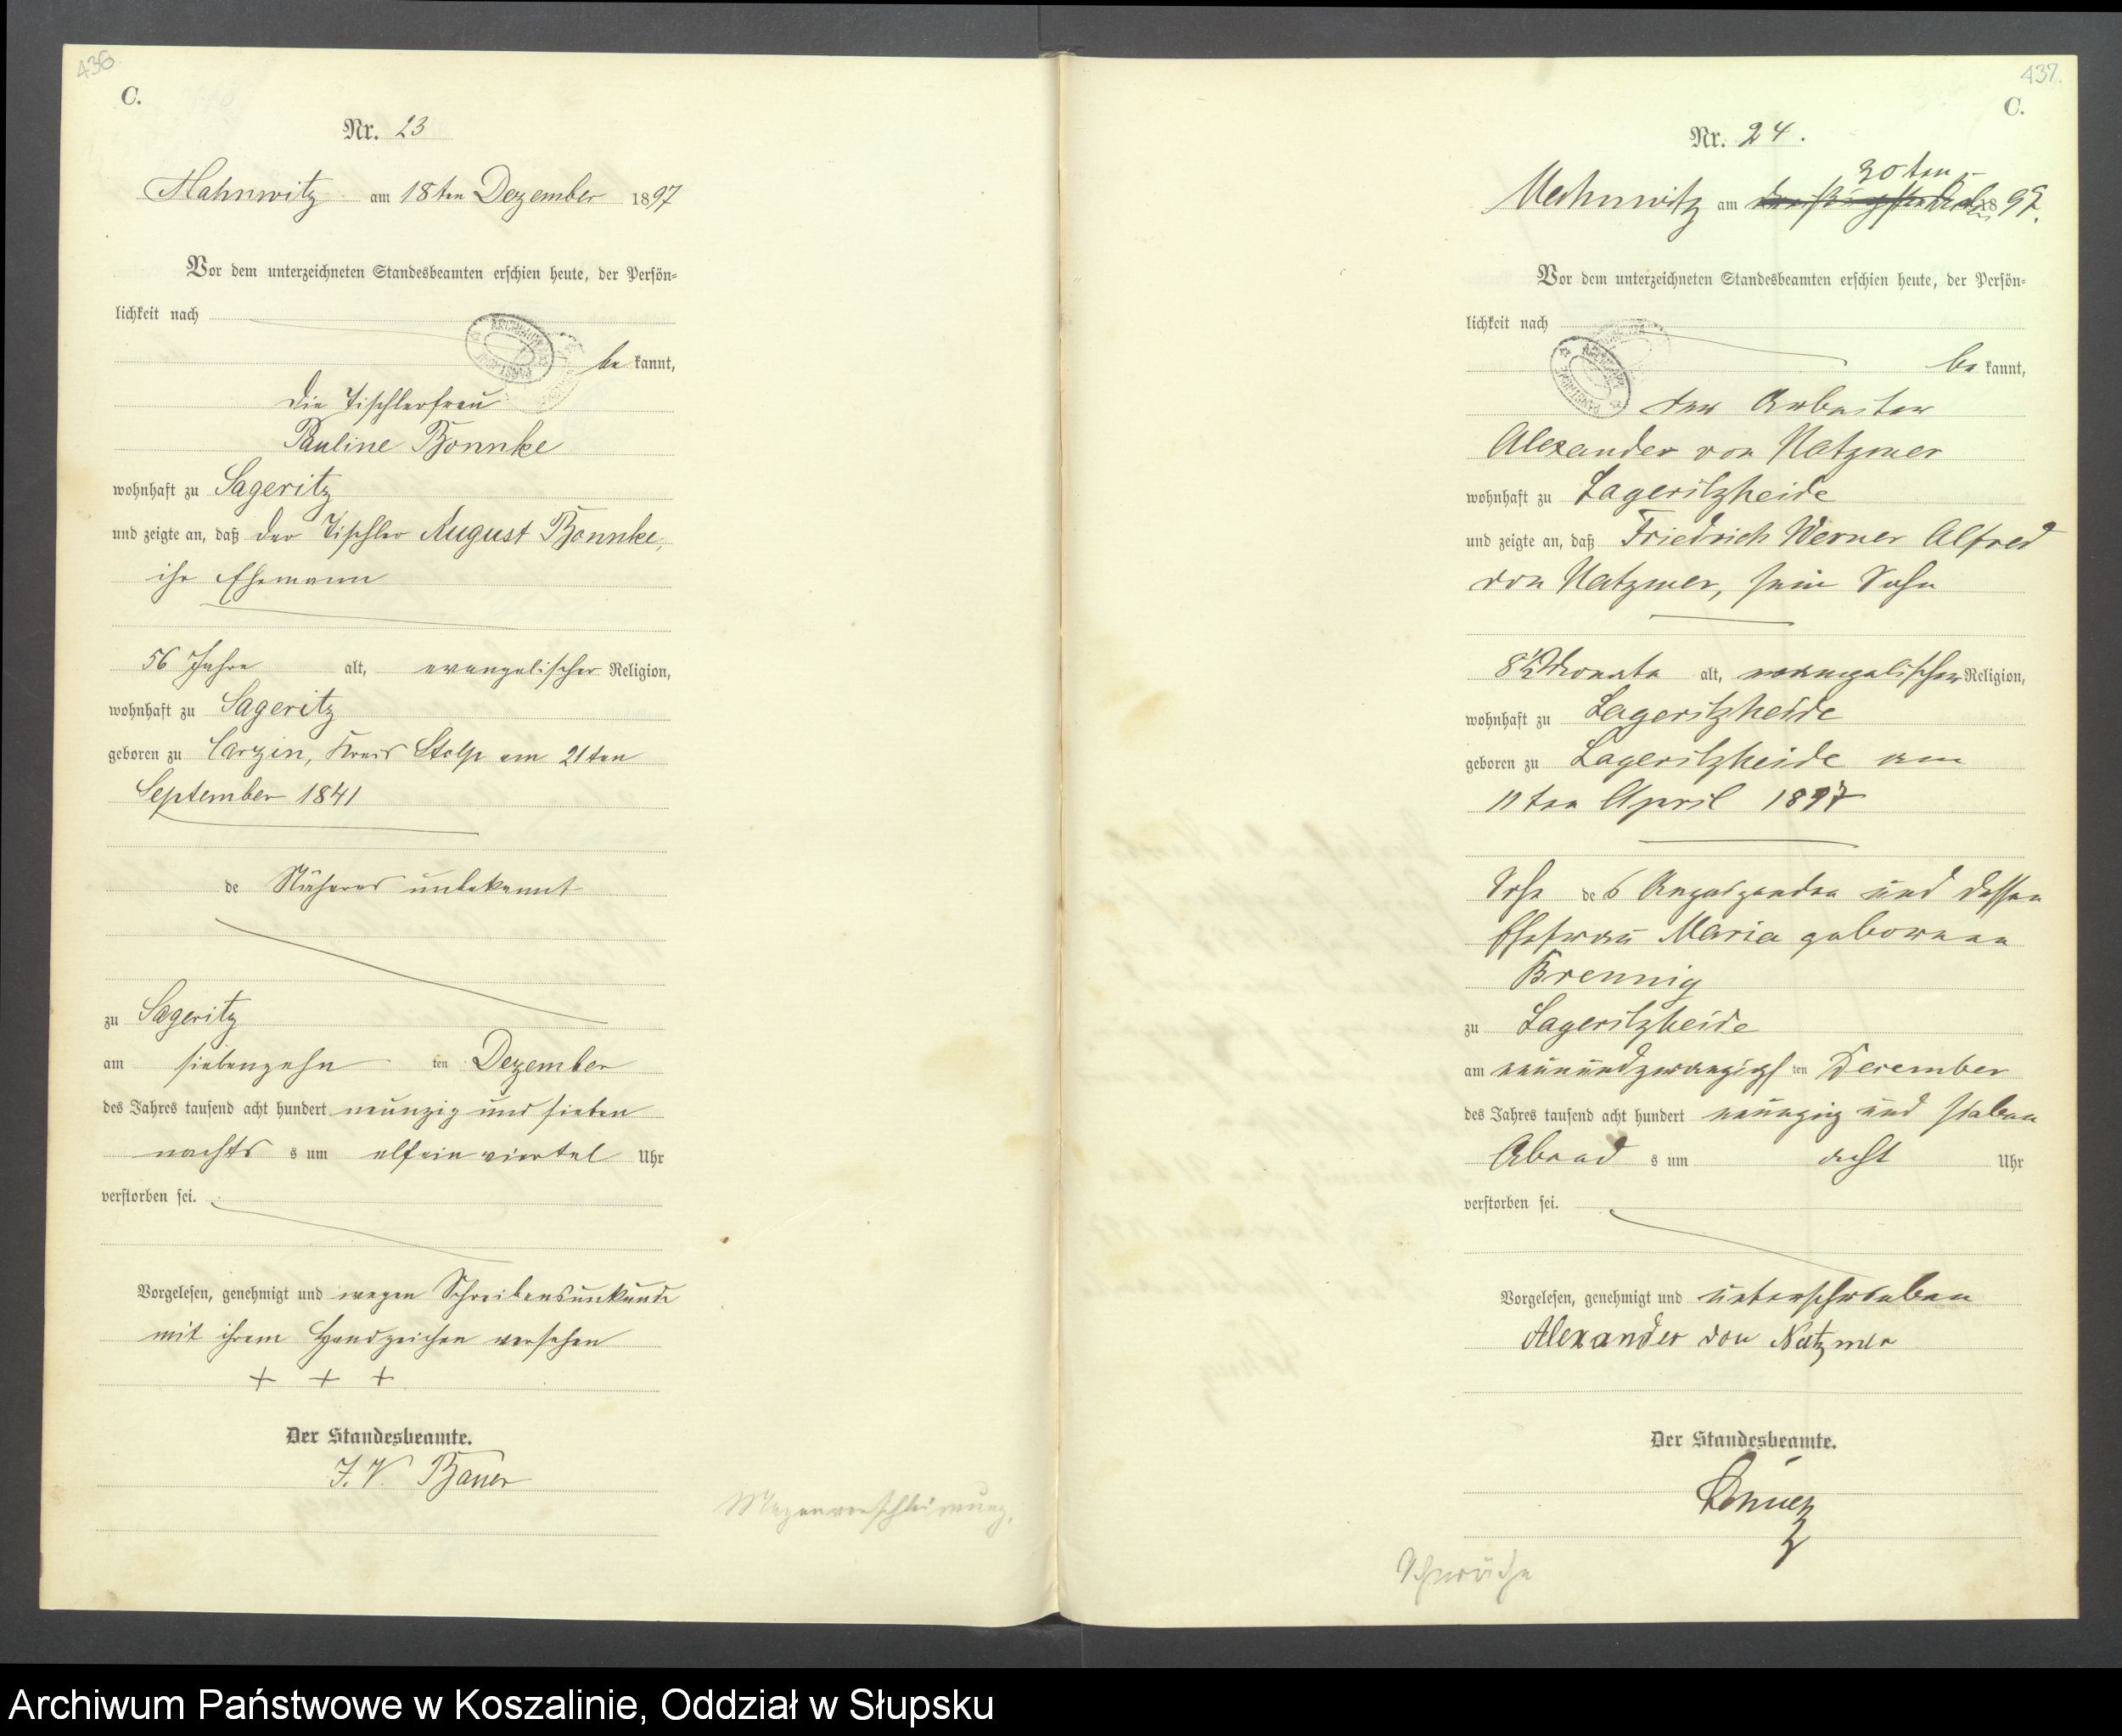 436
C.
Nr. 23
Mahnwitz am 18ten Dezember 1897
Vor dem unterzeichneten Standesbeamten erschien heute, der Persön-
lichkeit nach
be kannt,
die Tischlerfrau
Pauline Bonnke
wohnhaft zu Sageritz
und zeigte an, daß der Tischler August Bonnke,
ihr Ehemann
56 Jahre alt, evangelischer Religion,
wohnhaft zu Sageritz
geboren zu Carzin, Kreis Stolp am 21ten
September 1841
de Näheres unbekannt
zu Sageritz
am siebenzehn ten Dezember
des Jahres tausend acht hundert neunzig und sieben
nachts s um elfein viertel Uhr
verstorben sei.
Vorgelesen, genehmigt und wegen Schreibensunkunde
mit ihrem Handzeichen versehen
+ + +
Der Standesbeamte.
J. V. Bauer
Magenverschleimung,
437.
C.
Nr. 24.
30ten
Mahnwitz am 1897.
Vor dem unterzeichneten Standesbeamten erschien heute, der Persön-
lichkeit nach
be kannt,
der Arbeiter
Alexander von Natzmer
wohnhaft zu Sageritzheide
und zeigte an, daß Friedrich Werner Alfred
von Natzmer, sein Sohn
8 1/2 Monate alt, evangelischer Religion,
wohnhaft zu Sageritzheide
geboren zu Sageritzheide am
11ten April 1897
Sohn des Anzeigenden und dessen
Ehefrau Maria geborenen
Krennig
zu Sageritzheide
am neunundzwanzigs ten December
des Jahres tausend acht hundert neunzig und sieben
Abend s um acht Uhr
verstorben sei.
Vorgelesen, genehmigt und unterschrieben
Alexander von Natzmer
Der Standesbeamte.
Schwäche
Archiwum Państwowe w Koszalinie, Oddział w Słupsku